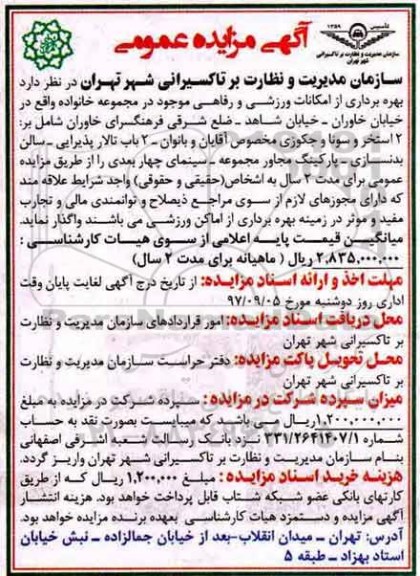 تأسیس ۱۳۵۹
سازمان مدیریت و نظارت بر تاکسیرانی
شهر تهران
آگهی مزایده عمومی
سازمان مدیریت و نظارت بر تاکسیرانی شهر تهران در نظر دارد
بهره برداری از امکانات ورزشی و رفاهی موجود در مجموعه خانواده واقع در
خیابان خاوران ـ خیابان شاهد ـ ضلع شرقی فرهنگسرای خاوران شامل بر:
۲ استخر و سونا و جکوزی مخصوص آقایان و بانوان ـ ۲ باب تالار پذیرایی ـ سالن
بدنسازی ـ پارکینگ مجاور مجموعه ـ سینمای چهار بعدی را از طریق مزایده
عمومی برای مدت ۲ سال به اشخاص(حقیقی و حقوقی) واجد شرایط علاقه مند
که دارای مجوزهای لازم از سوی مراجع ذیصلاح و توانمندی مالی و تجارب
مفید و موثر در زمینه بهره برداری از اماکن ورزشی می باشند واگذار نماید.
میانگین قیمت پایه اعلامی از سوی هیات کارشناسی :
۲.۸۳۵.۰۰۰.۰۰۰ ریال ( ماهیانه برای مدت ۲ سال)
مهلت اخذ و ارائه اسناد مزایده: از تاریخ درج آگهی لغایت پایان وقت
اداری روز دوشنبه مورخ ۹۷/۰۹/۰۵
محل دریافت اسناد مزایده: امور قراردادهای سازمان مدیریت و نظارت
بر تاکسیرانی شهر تهران
محل تحویل پاکت مزایده: دفتر حراست سازمان مدیریت و نظارت
بر تاکسیرانی شهر تهران
میزان سپرده شرکت در مزایده : سپرده شرکت در مزایده به مبلغ
۱.۲۰۰.۰۰۰.۰۰۰ریال می باشد که میبایست بصورت نقد به حساب
شماره ۳۳۱/۲۶۴۱۴۰۷/۱ نزد بانک رسالت شعبه اشرفی اصفهانی
بنام سازمان مدیریت و نظارت بر تاکسیرانی شهر تهران واریز گردد.
هزینه خرید اسناد مزایده : مبلغ ۱.۲۰۰.۰۰۰ ریال که از طریق
کارتهای بانکی عضو شبکه شتاب قابل پرداخت خواهد بود. هزینه انتشار
آگهی مزایده و دستمزد هیات کارشناسی بعهده برنده مزایده خواهد بود.
آدرس: تهران ـ میدان انقلاب-بعد از خیابان جمالزاده ـ نبش خیابان
استاد بهزاد ـ طبقه ۵